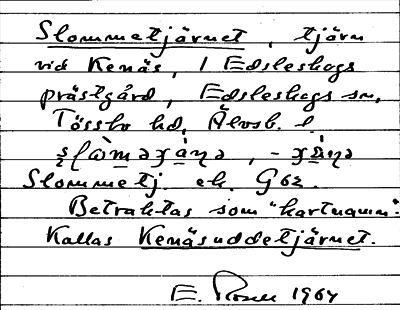 Slommetjärnet, tjärn
vid Kenäs, 1 Edsleskogs
prästgård, Edsleskogs sn,
Tössbo hd, Älvsb. l.
Slommetj. ek. G62.
Betraktas som "kartnamn".
Kallas Kenäsuddetjärnet.
E. 1964